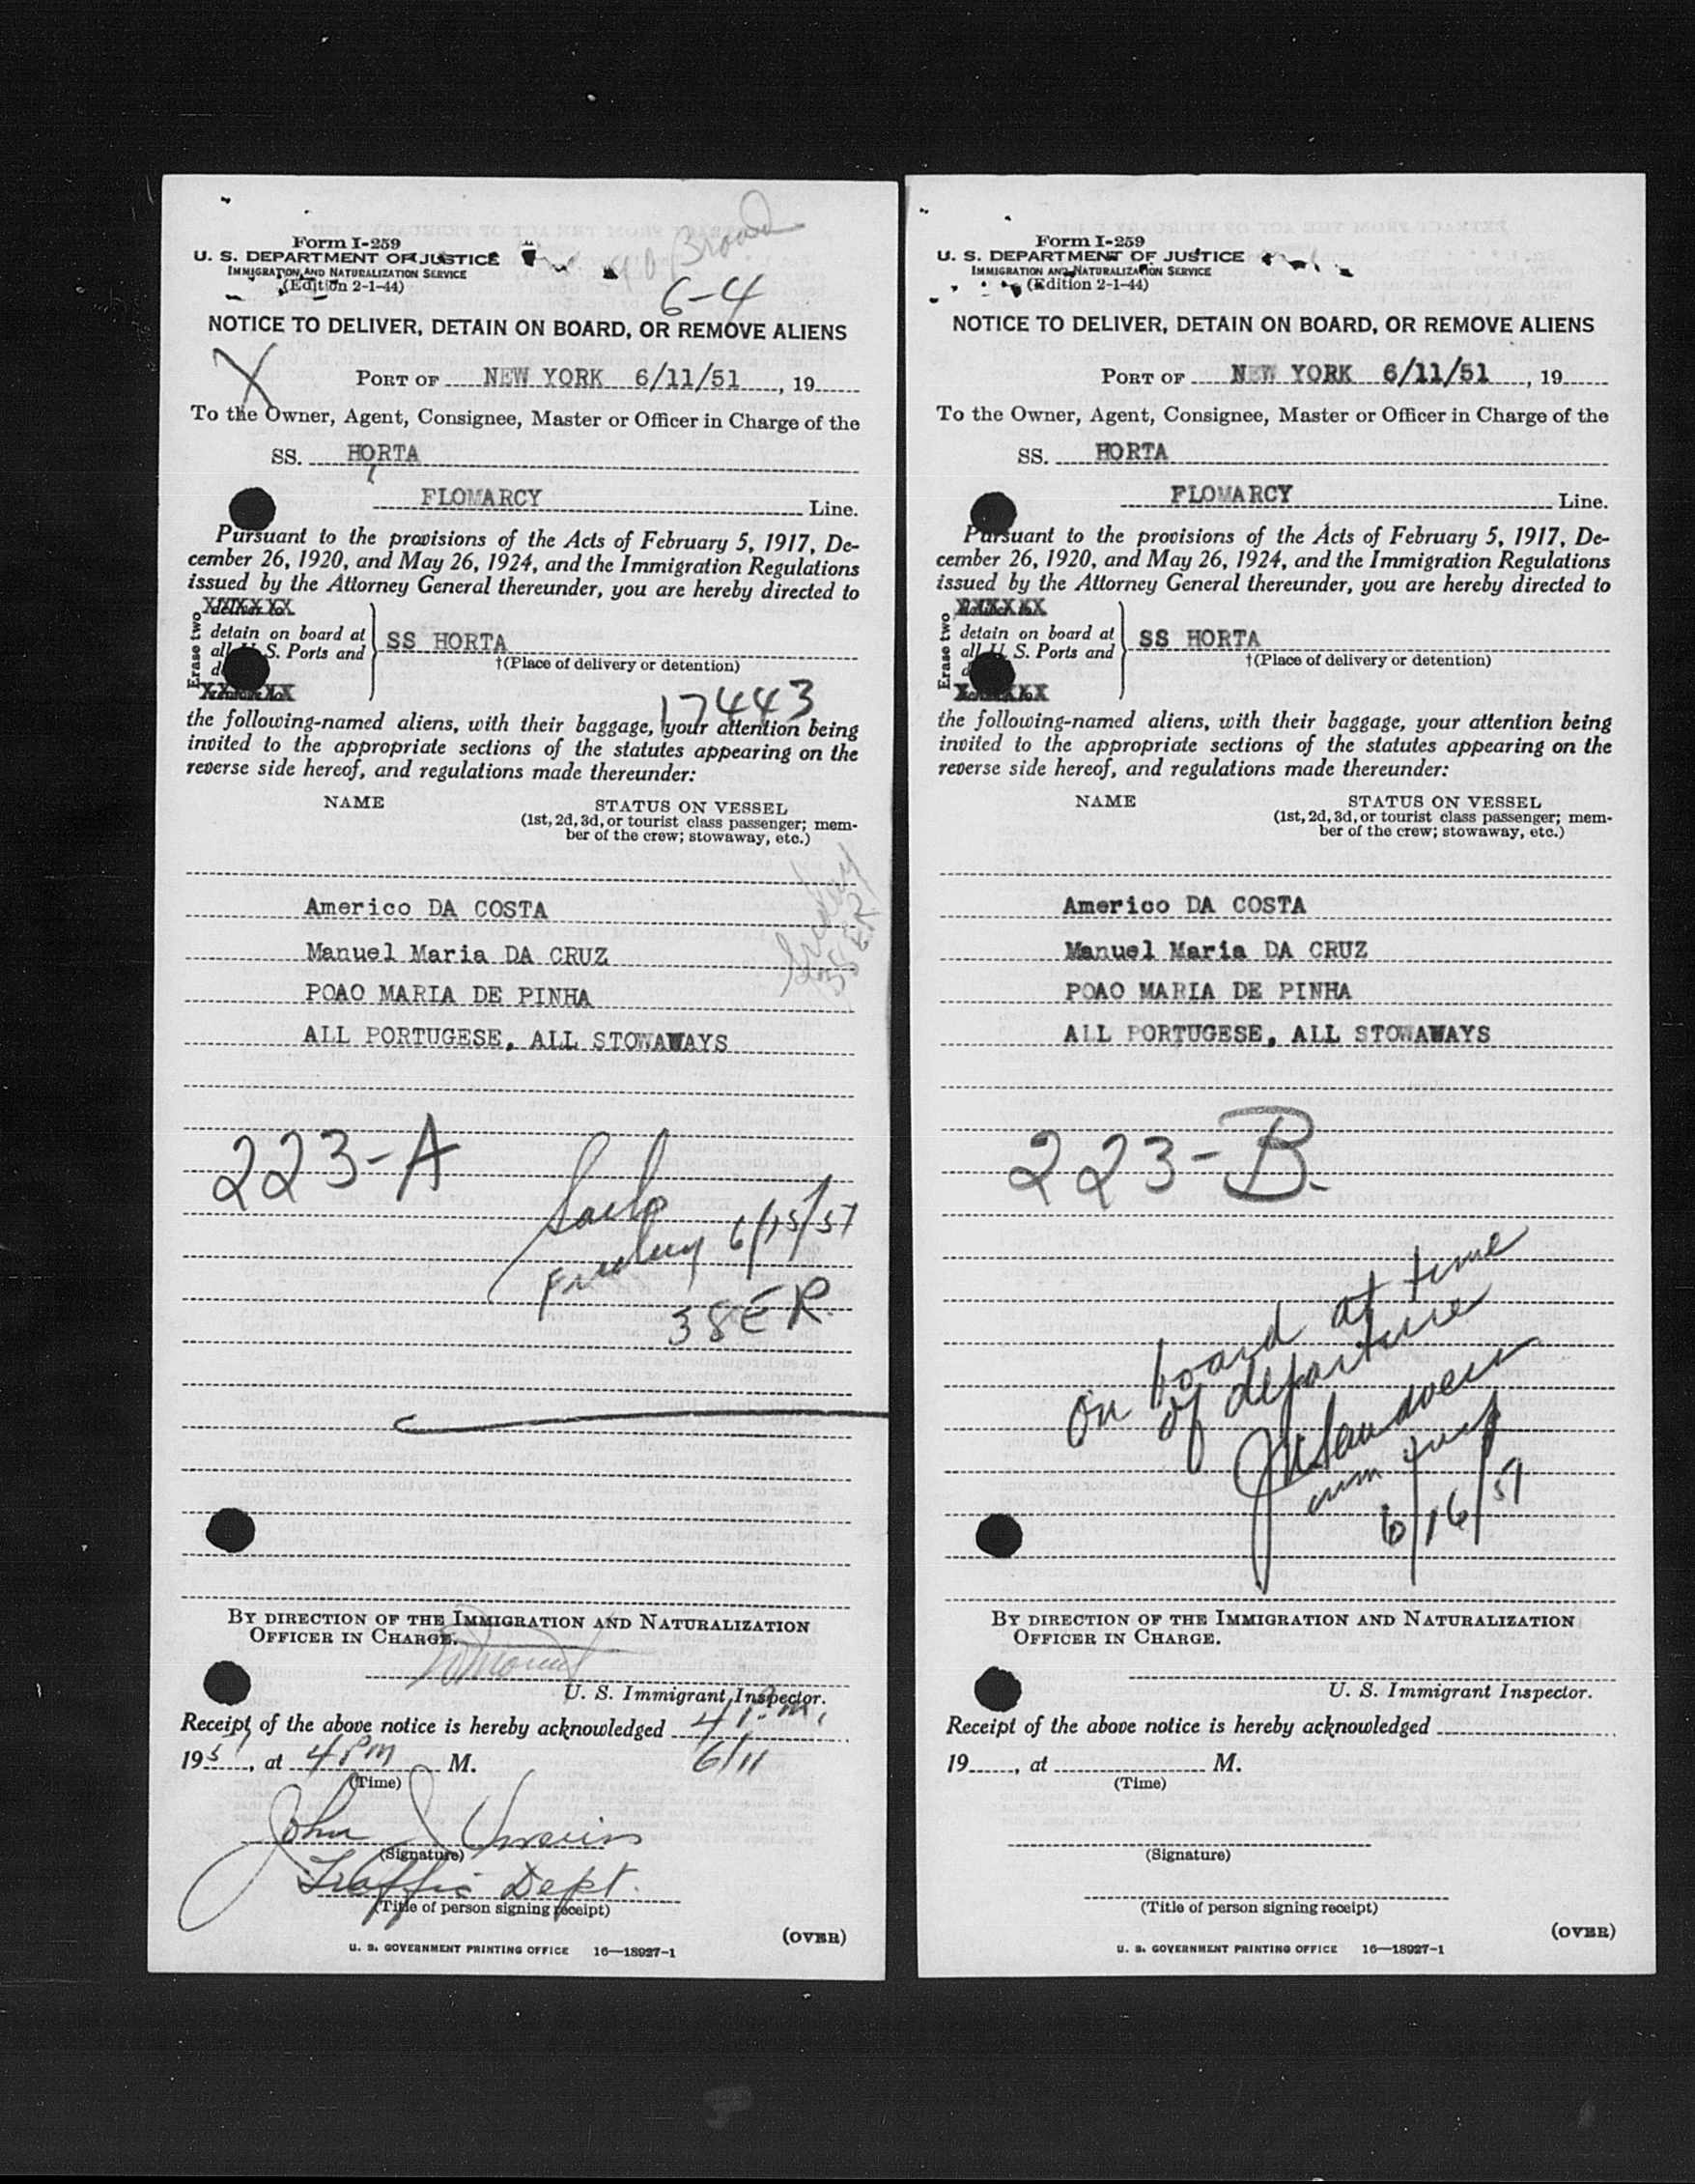 Broad
6-4
Form I-259
U. S. DEPARTMENT OF JUSTICE
IMMIGRATION AND NATURALIZATION SERVICE
(Edition 2-1-44)
NOTICE TO DELIVER, DETAIN ON BOARD, OR REMOVE ALIENS
X
PORT OF NEW YORK 6/11/51, 19
To the Owner, Agent, Consignee, Master or Officer in Charge of the
SS. HORTA
FLOMARCY Line.
Pursuant to the provisions of the Acts of February 5, 1917, De-
cember 26, 1920, and May 26, 1924, and the Immigration Regulations
issued by the Attorney General thereunder, you are hereby directed to
Erase two
detain on board at
all U. S. Ports and
SS HORTA
†(Place of delivery or detention)
17443
the following-named aliens, with their baggage, your attention being
invited to the appropriate sections of the statutes appearing on the
reverse side hereof, and regulations made thereunder:
NAME
STATUS ON VESSEL
(1st, 2d, 3d, or tourist class passenger; mem-
ber of the crew; stowaway, etc.)
Americo DA COSTA
Manuel Maria DA CRUZ
POAO MARIA DE PINHA
ALL PORTUGESE, ALL STOWAWAYS
38 ER
223-A
Sails
Friday 6/15/51
38 E R.
BY DIRECTION OF THE IMMIGRATION AND NATURALIZATION
OFFICER IN CHARGE.
U. S. Immigrant Inspector.
Receipt of the above notice is hereby acknowledged 4 P.m.
1951, at 4 Pm M. 6/11
(Time)
John J
(Signature)
Traffic Dept.
(Title of person signing receipt)
(OVER)
U. S. GOVERNMENT PRINTING OFFICE 16—18927-1
Form I-259
U. S. DEPARTMENT OF JUSTICE
IMMIGRATION AND NATURALIZATION SERVICE
(Edition 2-1-44)
NOTICE TO DELIVER, DETAIN ON BOARD, OR REMOVE ALIENS
PORT OF NEW YORK 6/11/51, 19
To the Owner, Agent, Consignee, Master or Officer in Charge of the
SS. HORTA
FLOMARCY Line.
Pursuant to the provisions of the Acts of February 5, 1917, De-
cember 26, 1920, and May 26, 1924, and the Immigration Regulations
issued by the Attorney General thereunder, you are hereby directed to
Erase two
detain on board at
all U. S. Ports and
SS HORTA
†(Place of delivery or detention)
the following-named aliens, with their baggage, your attention being
invited to the appropriate sections of the statutes appearing on the
reverse side hereof, and regulations made thereunder:
NAME
STATUS ON VESSEL
(1st, 2d, 3d, or tourist class passenger; mem-
ber of the crew; stowaway, etc.)
Americo DA COSTA
Manuel Maria DA CRUZ
POAO MARIA DE PINHA
ALL PORTUGESE, ALL STOWAWAYS
223-B.
on board at time
of departure
6/16/51
BY DIRECTION OF THE IMMIGRATION AND NATURALIZATION
OFFICER IN CHARGE.
U. S. Immigrant Inspector.
Receipt of the above notice is hereby acknowledged
19, at M.
(Time)
(Signature)
(Title of person signing receipt)
(OVER)
U. S. GOVERNMENT PRINTING OFFICE 16—18927-1